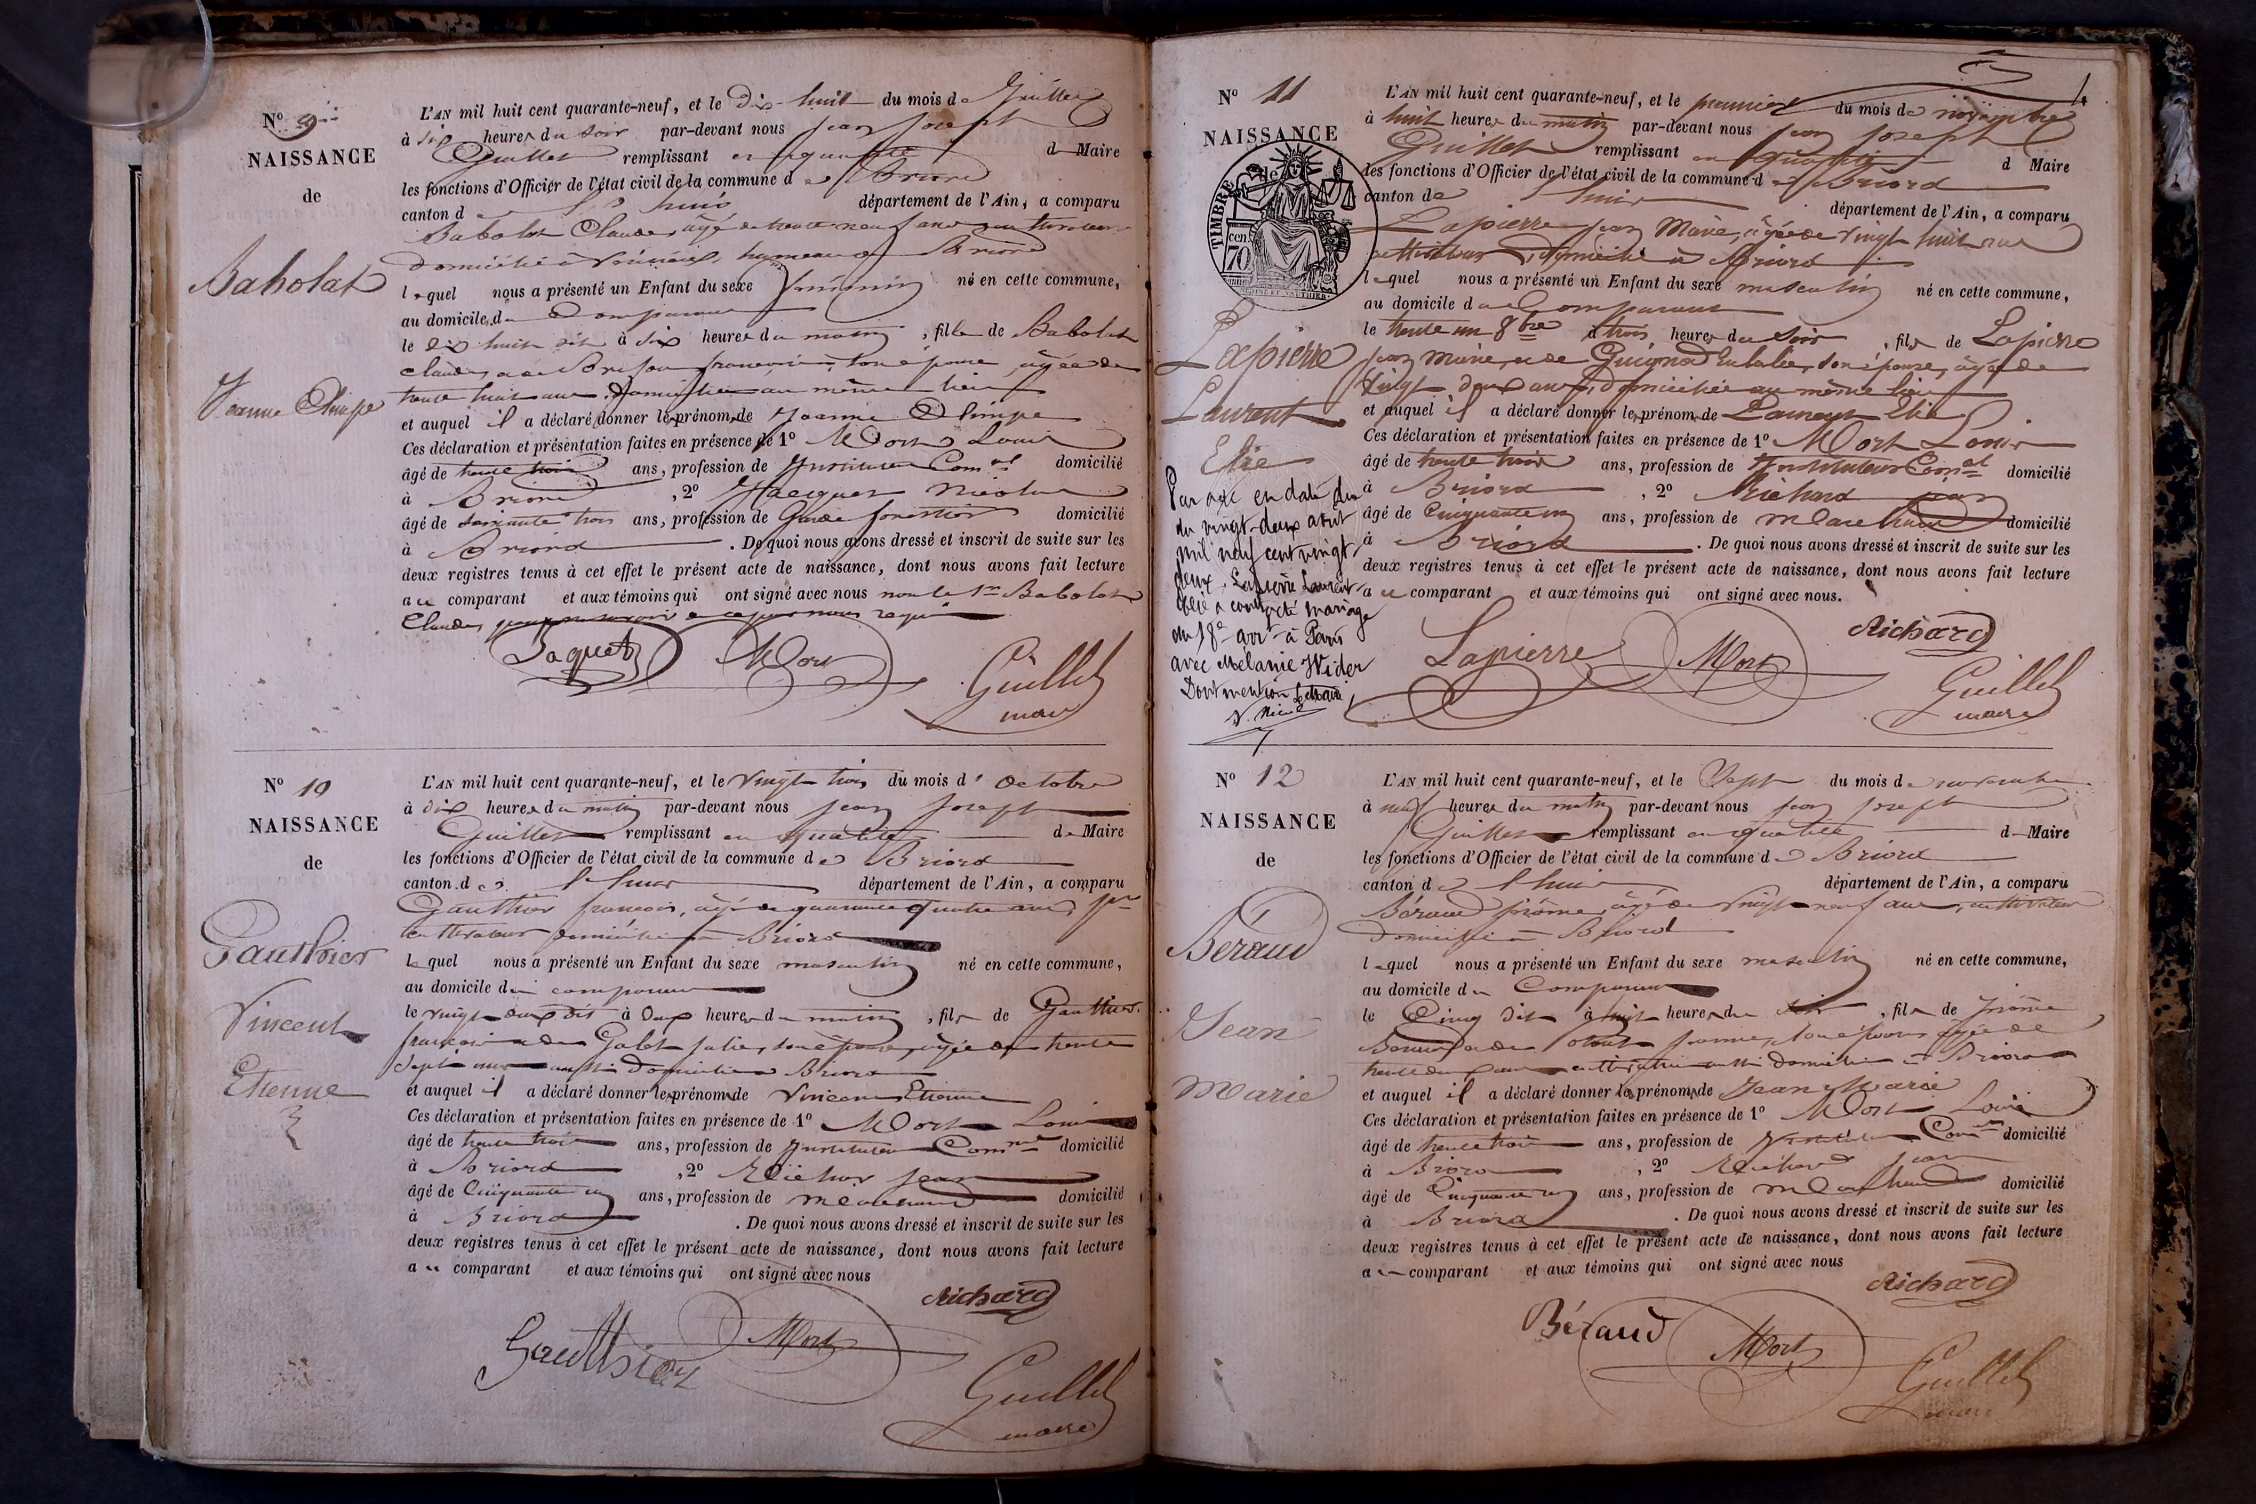 N° 9
NAISSANCE
de
Babolat
Jeanne Olimpe
L'AN mil huit cent quarante-neuf, et le dix-huit du mois de Juillet
à six heures du soir par-devant nous jean joseph
Guillet remplissant en qualité d Maire
les fonctions d'Officier de l'état civil de la commune de Briord
canton de l'huis département de l'Ain, a comparu
Babolat Claude, âgé de trente neuf ans, cultivateur
domicilié à hameau de Briord
lequel nous a présenté un Enfant du sexe féminin né en cette commune,
au domicile du Comparant
le dix huit dit à six heures du matin, fille de Babolat
Claude, et de françoise, son épouse, âgée de
trente huit ans, domiciliée au même lieu
et auquel il a déclaré donner les prénoms de Jeanne Olimpe
Ces déclaration et présentation faites en présence de 1° Mort Louis
âgé de trente trois ans, profession de Instituteur Comal domicilié
à Briord, 2° Jacquet Nicolas
âgé de soixante trois ans, profession de Garde forestier domicilié
à Briord. De quoi nous avons dressé et inscrit de suite sur les
deux registres tenus à cet effet le présent acte de naissance, dont nous avons fait lecture
au comparant et aux témoins qui ont signé avec nous non le sr Babolat
Claude, pour ne savoir de ce par nous requis
Jaquet Mort Guillet
maire
N° 10
NAISSANCE
de
Gauthier
Vincent
Etienne
L'AN mil huit cent quarante-neuf, et le vingt trois du mois d'octobre
à dix heures du matin par-devant nous jean joseph
Guillet remplissant en qualité de Maire
les fonctions d'Officier de l'état civil de la commune de Briord
canton de l'huis département de l'Ain, a comparu
Gauthier françois, âgé de quarante quatre ans, pon
cultivateur domicilié à Briord
lequel nous a présenté un Enfant du sexe masculin né en cette commune,
au domicile du comparant
le vingt deux dit à Deux heures du matin, fils de Gauthier
françois et de Galet julie, son épouse, âgée de trente
sept ans aussi domiciliée à Briord
et auquel il a déclaré donner les prénoms de Vincent Etienne
Ces déclaration et présentation faites en présence de 1° Mort Louis
âgé de trente trois ans, profession de Instituteur Comal domicilié
à Briord, 2° Richard jean
âgé de Cinquante un ans, profession de Marchand domicilié
à Briord. De quoi nous avons dressé et inscrit de suite sur les
deux registres tenus à cet effet le présent acte de naissance, dont nous avons fait lecture
au comparant et aux témoins qui ont signé avec nous
Richard
Gauthier Mort
Guillet
maire
N° 11
NAISSANCE
de
TIMBRE
70 cen
Lapierre
Laurent
Elie
Par acte en date du
du vingt-deux août
mil neuf cent vingt
deux, Lapierre Laurent
Elie a contracté mariage
au 18e arrt à Paris
avec Mélanie Wider
Dont mention
L'AN mil huit cent quarante-neuf, et le premier du mois de novembre
à huit heures du matin par-devant nous jean joseph
Guillet remplissant en qualité d Maire
les fonctions d'Officier de l'état civil de la commune de Briord
canton de l'huis département de l'Ain, a comparu
Lapierre jean Marie, âgé de vingt huit ans
cultivateur, domicilié à Briord
lequel nous a présenté un Enfant du sexe masculin né en cette commune,
au domicile du Comparant
le trente un 8bre à trois heures du soir, fils de Lapierre
jean Marie, et de Guignod Eulalie, son épouse, âgée de
vingt deux ans, domiciliée au même lieu
et auquel il a déclaré donner les prénoms de Laurent Elie
Ces déclaration et présentation faites en présence de 1° Mort Louis
âgé de trente trois ans, profession de Instituteur Comal domicilié
à Briord, 2° Richard jean
âgé de Cinquante un ans, profession de Marchand domicilié
à Briord. De quoi nous avons dressé et inscrit de suite sur les
deux registres tenus à cet effet le présent acte de naissance, dont nous avons fait lecture
au comparant et aux témoins qui ont signé avec nous.
Richard
Lapierre Mort
Guillet
maire
N° 12
NAISSANCE
de
Béraud
Jean
Marie
L'AN mil huit cent quarante-neuf, et le Sept du mois de novembre
à neuf heures du matin par-devant nous jean joseph
Guillet remplissant en qualité d Maire
les fonctions d'Officier de l'état civil de la commune de Briord
canton de l'huis département de l'Ain, a comparu
Béraud jérôme, âgé de vingt neuf ans, cultivateur
domicilié à Briord
lequel nous a présenté un Enfant du sexe masculin né en cette commune,
au domicile du Comparant
le Cinq dit à huit heures du soir, fils de jérôme
Béraud et de jeanne, son épouse âgée de
trente deux ans cultivatrice aussi domiciliée à Briord
et auquel il a déclaré donner les prénoms de Jean Marie
Ces déclaration et présentation faites en présence de 1° Mort Louis
âgé de trente trois ans, profession de Instituteur Comal domicilié
à Briord, 2° Richard jean
âgé de Cinquante un ans, profession de Marchand domicilié
à Briord. De quoi nous avons dressé et inscrit de suite sur les
deux registres tenus à cet effet le présent acte de naissance, dont nous avons fait lecture
au comparant et aux témoins qui ont signé avec nous
Richard
Béraud Mort
Guillet
maire